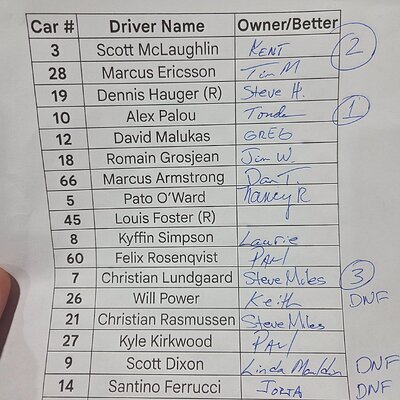 Car # Driver Name Owner/Better
3 Scott McLaughlin KENT 2
28 Marcus Ericsson Tim M
19 Dennis Hauger (R) Steve H.
10 Alex Palou 1
12 David Malukas GREG
18 Romain Grosjean Jim W.
66 Marcus Armstrong Dan T.
5 Pato O'Ward Nancy R
45 Louis Foster (R)
8 Kyffin Simpson Laurie
60 Felix Rosenqvist PAul
7 Christian Lundgaard Steve Miles 3
26 Will Power Keith DNF
21 Christian Rasmussen Steve Miles
27 Kyle Kirkwood PAul
9 Scott Dixon Linda DNF
14 Santino Ferrucci DNF